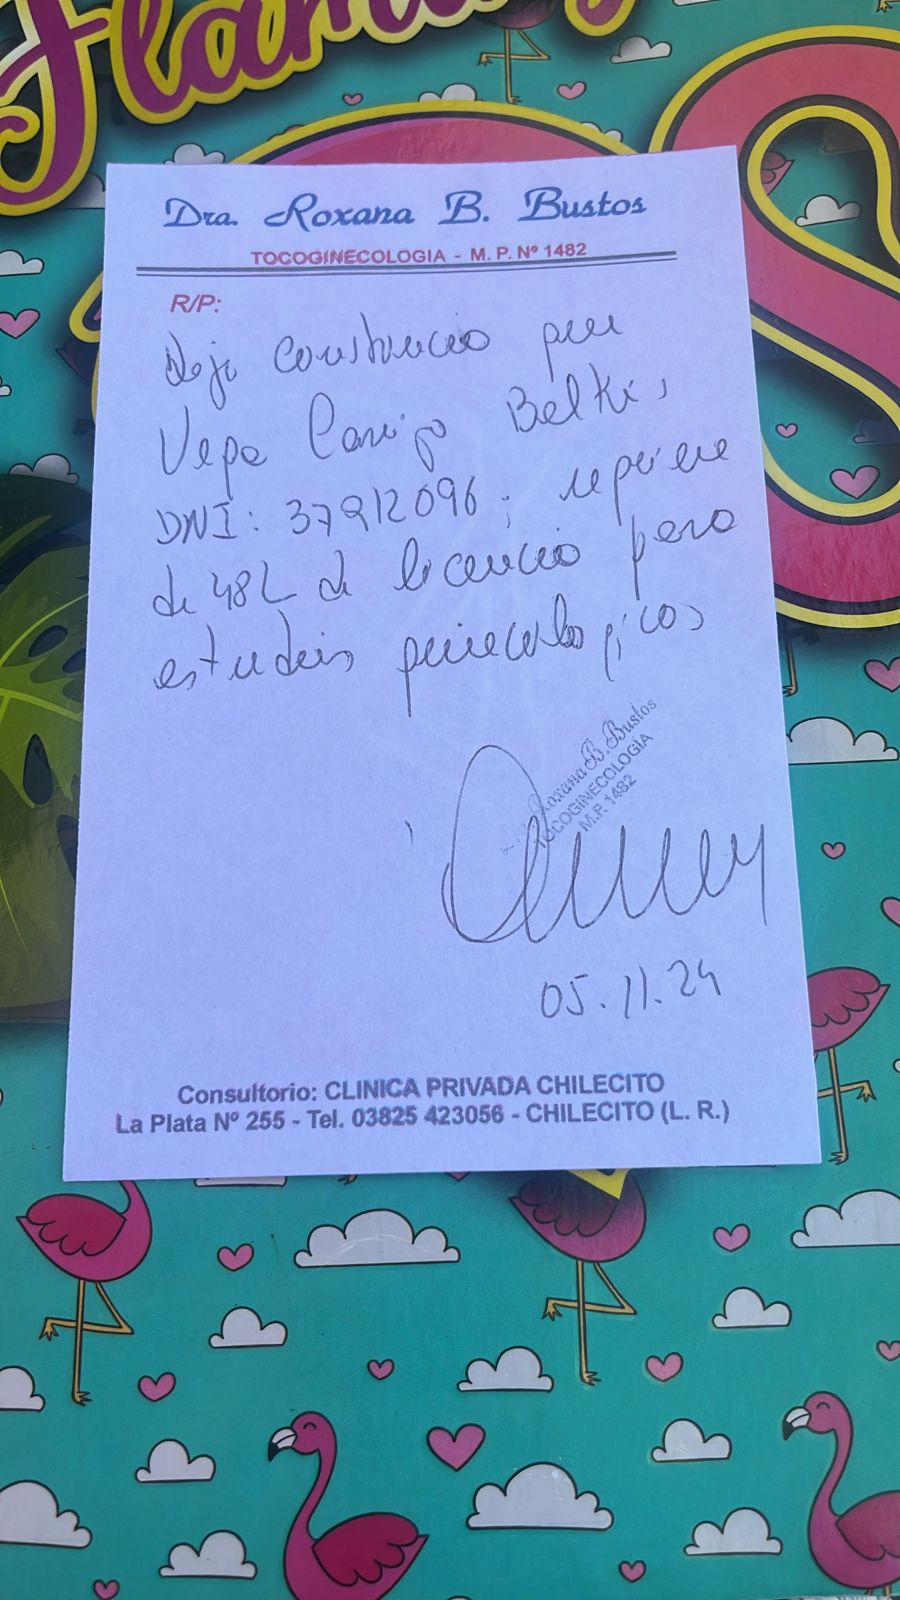 Flamingo
Dra. Roxana B. Bustos
TOCOGINECOLOGIA - M. P. Nº 1482
R/P:
Dejo constancia que
Vega Carrizo Belkis,
DNI: 37912096; requiere
de 48h de licencia para
estudios ginecologicos
Roxana B. Bustos
TOCOGINECOLOGÍA
M.P. 1482
05.11.24
Consultorio: CLINICA PRIVADA CHILECITO
La Plata Nº 255 - Tel. 03825 423056 - CHILECITO (L. R.)